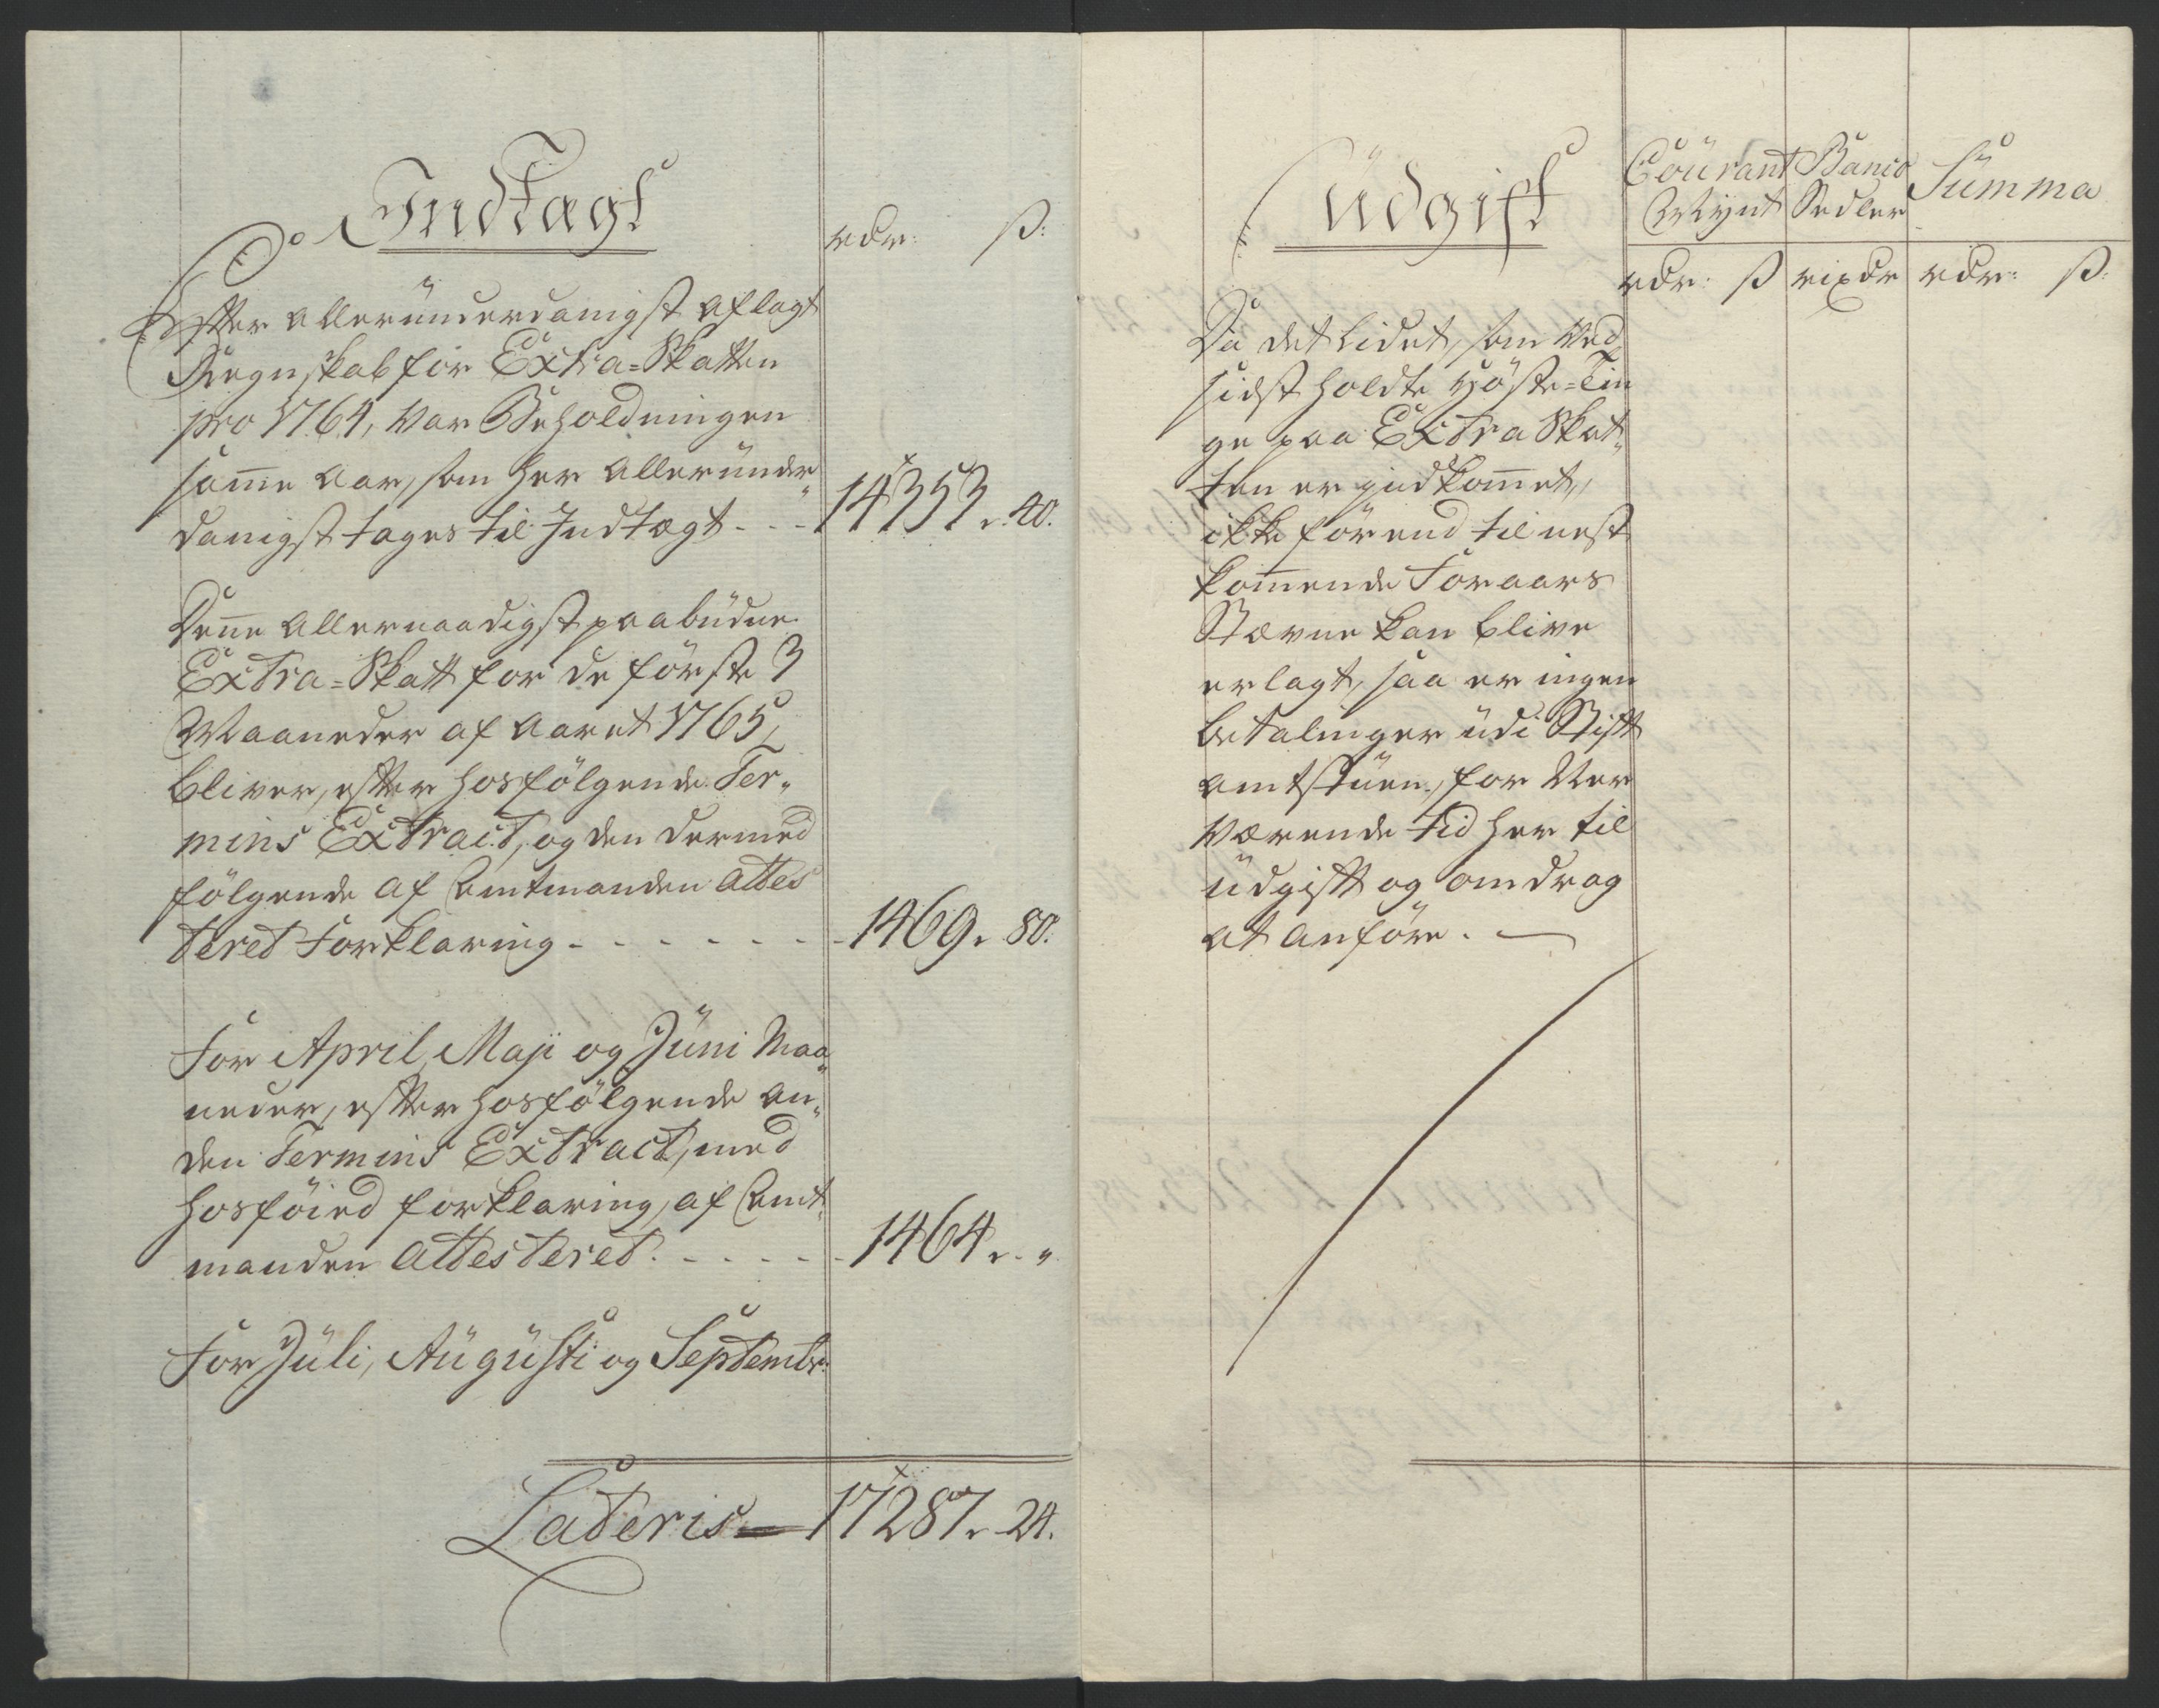 Indtægt
rdr: ß:
Efter alleründerdanigst aflagt
Regnskab for Extra=Skatten
pro 1764, var Beholdningen
sam̅e aar, som her alleründer„
danigst tages til Indtægt - - - 14353„ 40.
Den̅e allernaadigst paabüdne
Extra=Skatt for de förste 3
Maaneder af aaret 1765,
bliver, efter hosfölgende Ter„
mins Extract, og den dermed
fölgende af Amtmanden attes
teret Forklaring - - - - - - - 1469„ 80.
For April, Maji og Jüni Maa„
neder, efter hosfölgende an„
den Termins Extract, med
hosföied forklaring, af Amt„
manden attesteret. - - - - - 1464„ - „
For Jüli, Aügüsti og Septembr:
Lateris — 17287„ 24.
Üdgift
Coürant Banco Sümma
Mÿnt Sedler
rdr: ß rixdr rdr: ß:
Da det lidet, som ved
sidst holdte Höste=Tin
ge paa Extra Skat„
ten er indkom̅et,
ikke förend til nest
kom̅ende Foraars
Stævne kan blive
erlagt, saa er ingen
betalinger üdi Stift
amtstüen, for Nær
værende tid her til
üdgift og omdrag
at anföre. —